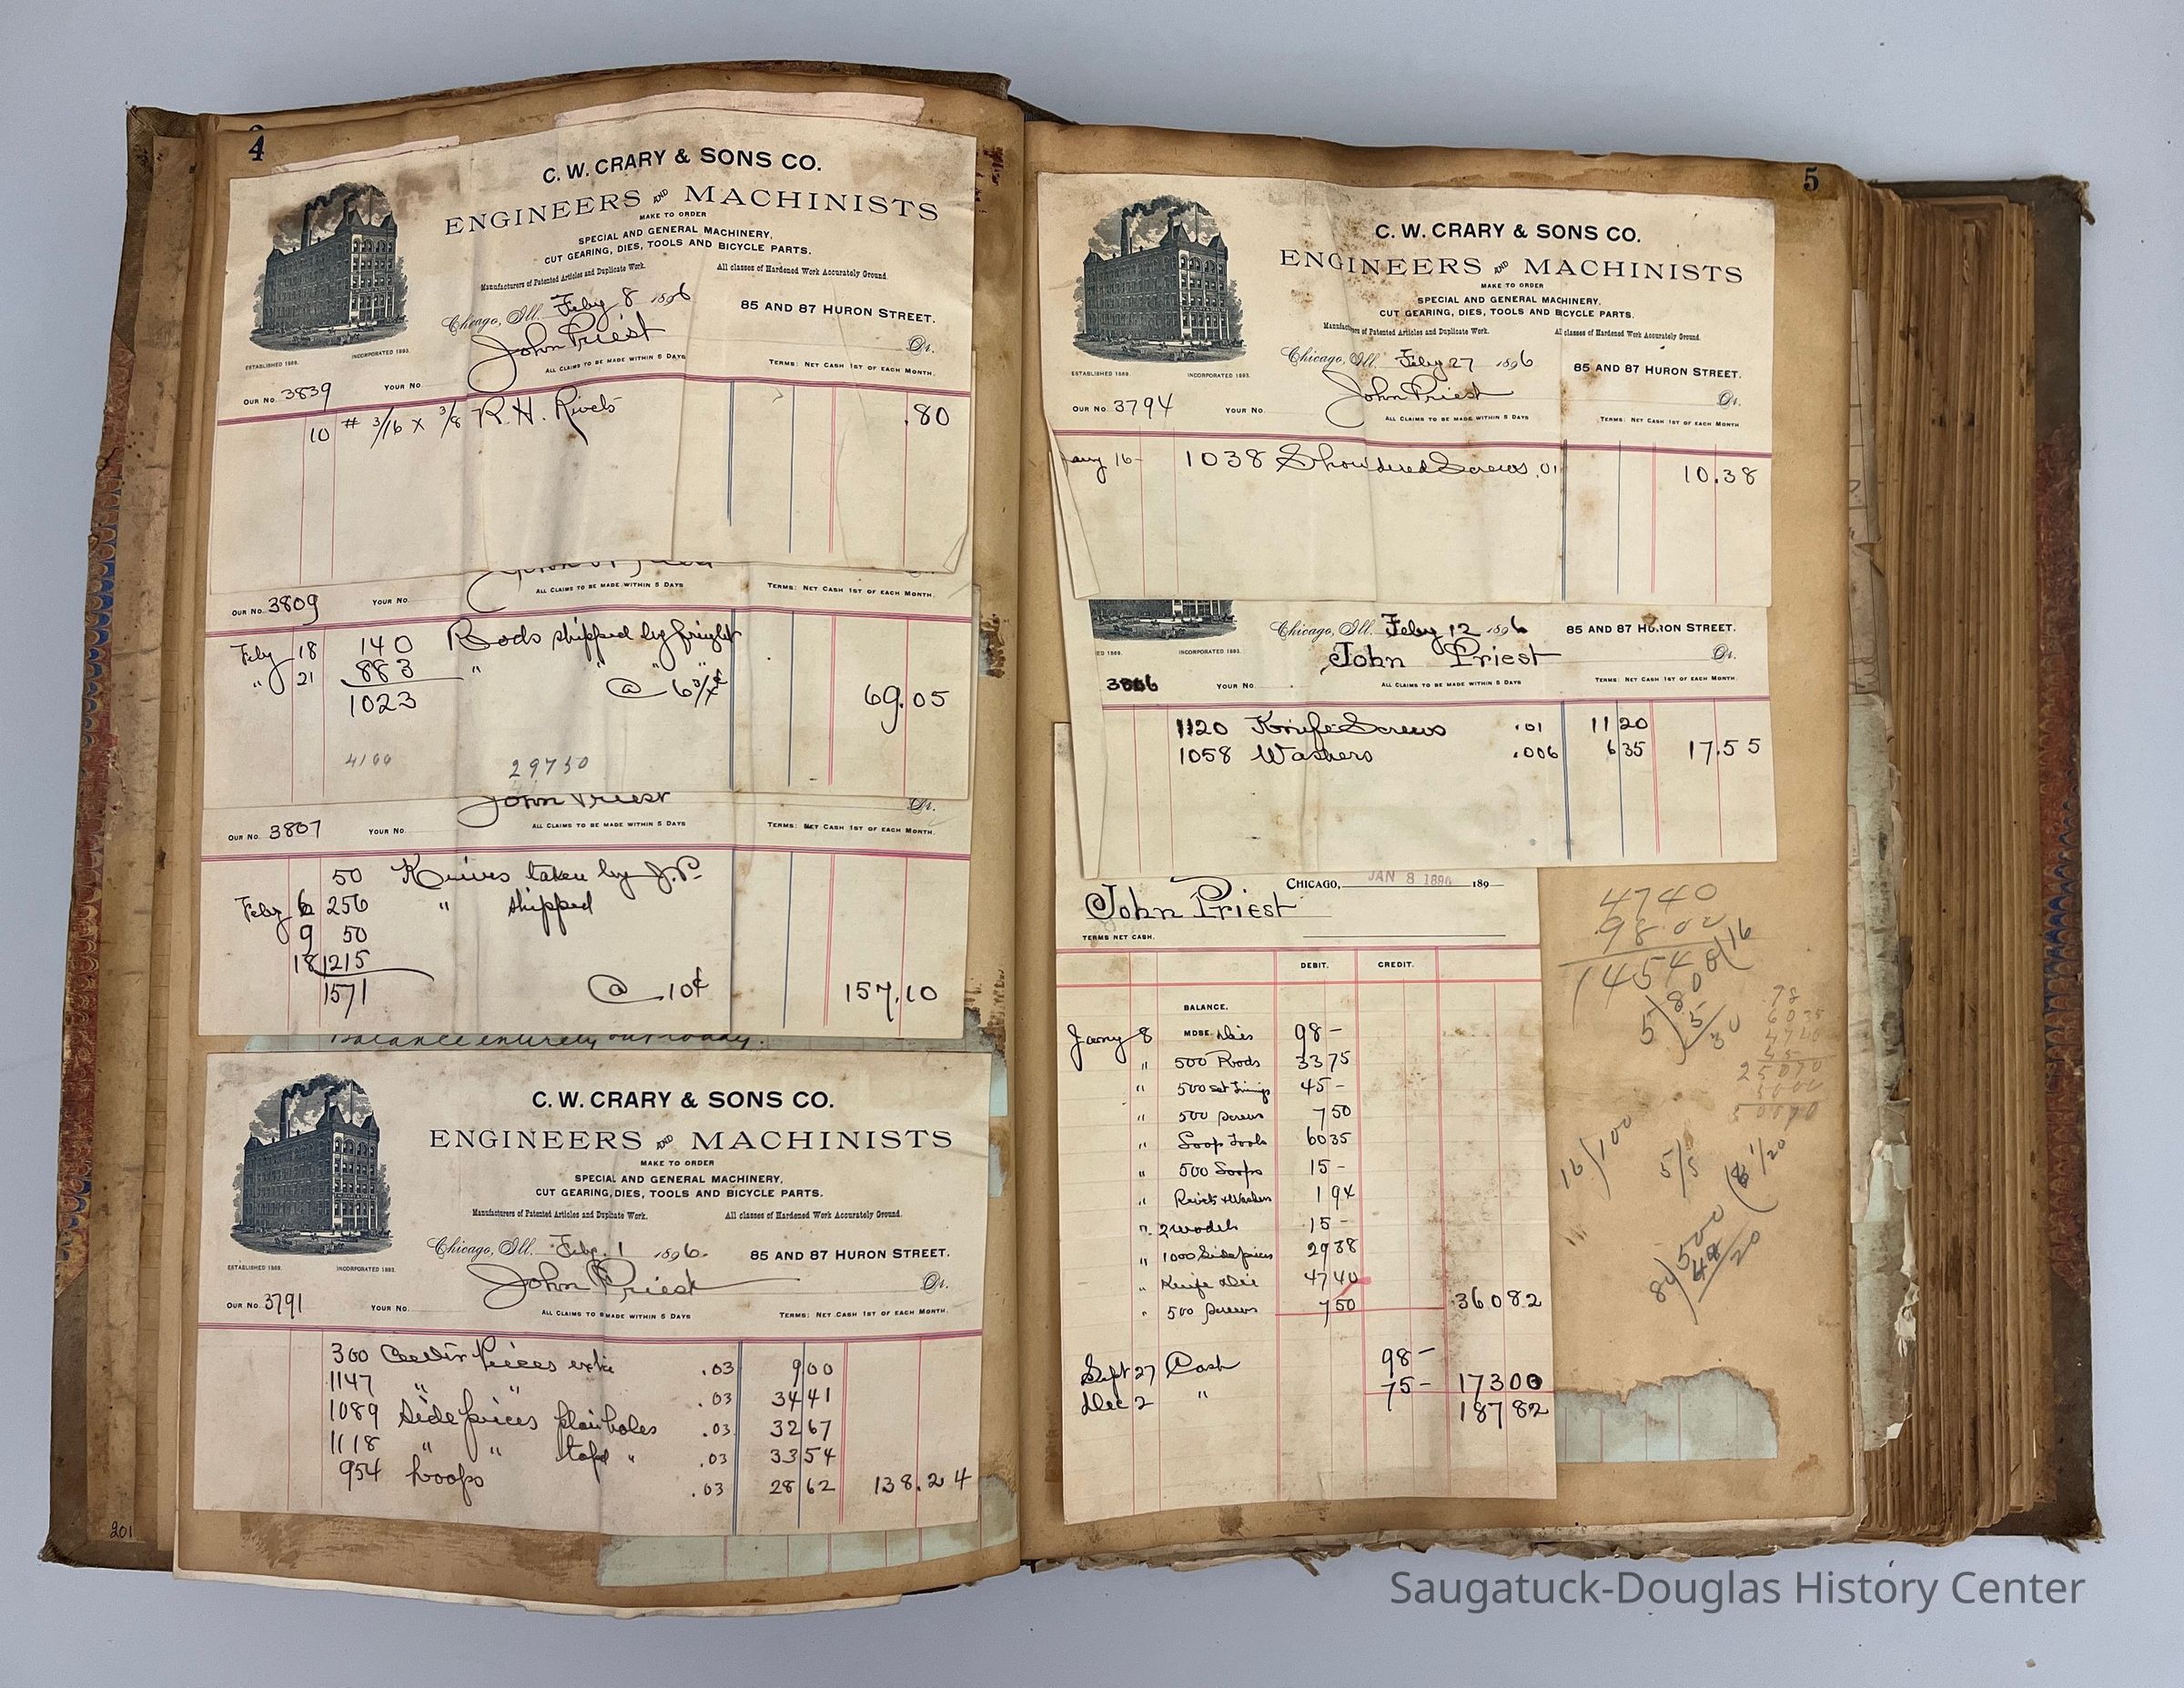 4
C. W. CRARY & SONS CO.
ENGINEERS AND MACHINISTS
MAKE TO ORDER
SPECIAL AND GENERAL MACHINERY,
CUT GEARING, DIES, TOOLS AND BICYCLE PARTS.
Manufacturers of Patented Articles and Duplicate Work. All classes of Hardened Work Accurately Ground.
Chicago, Ill. Feby 8 1896 85 AND 87 HURON STREET.
John Priest Dr.
ESTABLISHED 1869. INCORPORATED 1893. ALL CLAIMS TO BE MADE WITHIN 5 DAYS TERMS: NET CASH 1ST OF EACH MONTH.
OUR NO. 3839 YOUR NO.
10 # 3/16 x 3/8 R.H. Rivets .80
ALL CLAIMS TO BE MADE WITHIN 5 DAYS TERMS: NET CASH 1ST OF EACH MONTH.
OUR NO. 3809 YOUR NO.
Feby 18 140 Rods shipped by freight
" 21 883 " " " "
1023 @ 6 3/4¢ 69.05
4100 29750
John Priest Dr.
OUR NO. 3807 YOUR NO. ALL CLAIMS TO BE MADE WITHIN 5 DAYS TERMS: NET CASH 1ST OF EACH MONTH.
50 Knives taken by J.P.
Feby 6 256 " shipped
9 50
18 1215
1571 @ 10¢ 157.10
Balance entirely out today.
C. W. CRARY & SONS CO.
ENGINEERS AND MACHINISTS
MAKE TO ORDER
SPECIAL AND GENERAL MACHINERY,
CUT GEARING, DIES, TOOLS AND BICYCLE PARTS.
Manufacturers of Patented Articles and Duplicate Work. All classes of Hardened Work Accurately Ground.
Chicago, Ill. Feby. 1 1896. 85 AND 87 HURON STREET.
ESTABLISHED 1869. INCORPORATED 1893.
John Priest Dr.
OUR NO. 3791 YOUR NO. ALL CLAIMS TO BE MADE WITHIN 5 DAYS TERMS: NET CASH 1ST OF EACH MONTH.
300 Center pieces extra .03 9 00
1147 " " .03 34 41
1089 Side pieces plain holes .03 32 67
1118 " " tapd " .03 33 54
954 hoops .03 28 62 138.24
201
5
C. W. CRARY & SONS CO.
ENGINEERS AND MACHINISTS
MAKE TO ORDER
SPECIAL AND GENERAL MACHINERY,
CUT GEARING, DIES, TOOLS AND BICYCLE PARTS.
Manufacturers of Patented Articles and Duplicate Work. All classes of Hardened Work Accurately Ground.
Chicago, Ill. Feby 27 1896 85 AND 87 HURON STREET.
ESTABLISHED 1869. INCORPORATED 1893.
John Priest Dr.
OUR NO. 3794 YOUR NO. ALL CLAIMS TO BE MADE WITHIN 5 DAYS TERMS: NET CASH 1ST OF EACH MONTH
16 - 1038 Shouldered Screws .01 10.38
Chicago, Ill. Feby 12 1896 85 AND 87 HURON STREET.
ED 1869. INCORPORATED 1893.
John Priest Dr.
YOUR NO. ALL CLAIMS TO BE MADE WITHIN 5 DAYS TERMS: NET CASH 1ST OF EACH MONTH.
1120 Knife Screws .01 11 20
1058 Washers .006 6 35 17.55
CHICAGO, JAN 8 1896 189
John Priest
TERMS NET CASH.
DEBIT. CREDIT.
BALANCE.
Jany 8 MDSE. Dies 98 -
" 500 Rods 33 75
" 500 set 45 -
" 500 Screws 7 50
" Loop Tools 60 35
" 500 Loops 15 -
" Rivets & Washers 1 94
" 2 Models 15 -
" 1000 Side pieces 29 38
" Knife Die 47 40
" 500 Screws 7 50 360 82
Sept 27 Cash 98 -
Dec 2 " 75 - 173 00
187 82
4740
9800
16
5
30
16)100
5/5
1/20
8)500
48
20
Saugatuck-Douglas History Center